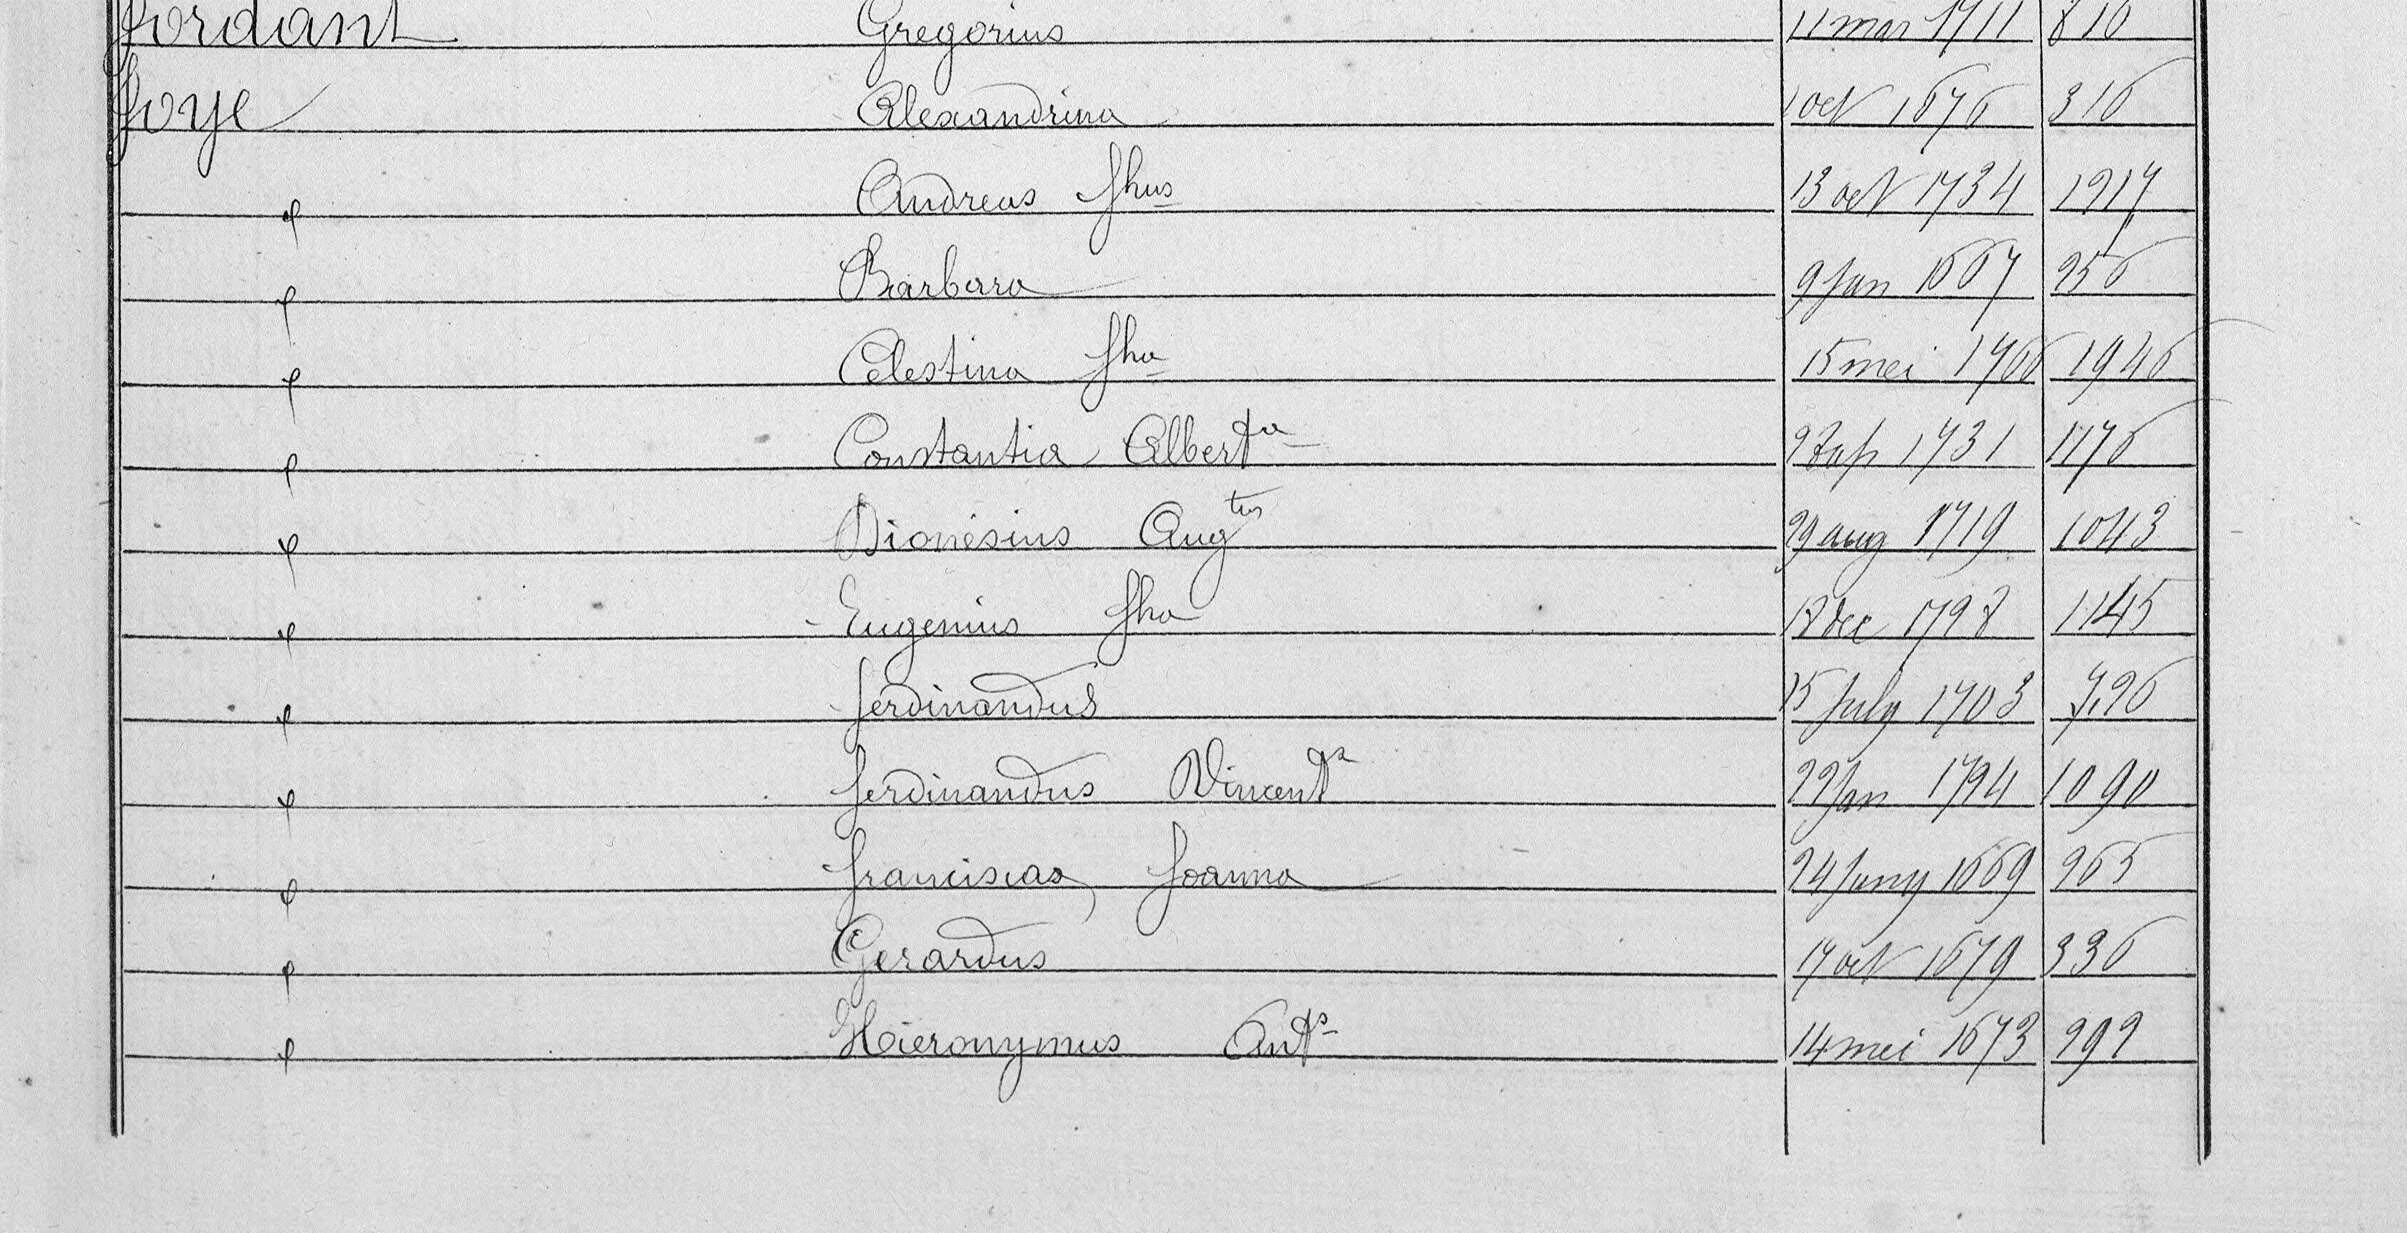 Jordant Gregorius 11 mar 1711 810
Joye Alexandrina 1 oct 1676 316
φ Andreas Jhus 13 oct 1734 1217
φ Barbara 9 Jan 1667 256
φ Celestina Jha 15 mei 1766 1246
φ Constantia Albertª 2 1731 1176
φ Dionesius Augtus 29 aug 1719 1043
φ Eugenius Jha 18 dec 1728 1145
φ Ferdinandus 15 July 1703 726
φ Ferdinandus Vincent 22 Jan 1724 1090
φ Francisca Joanna 24 Juny 1669 265
φ Gerardus 17 oct 1679 336
φ Hieronymus Ants 14 mei 1673 292